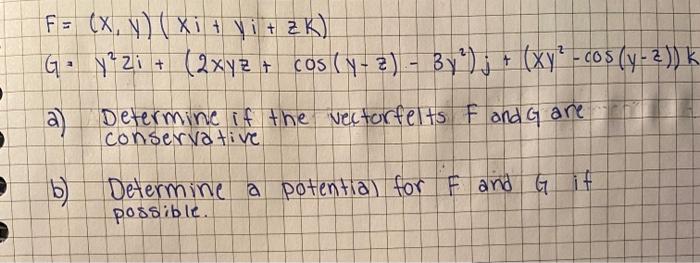 F = (x, y) ( xi + yi + zk)
G = y²zi + (2xyz + cos(y-z) - 3y²)j + (xy² - cos(y-z))k
a) Determine if the vectorfelts F and G are
conservative
b) Determine a potential for F and G if
possible.